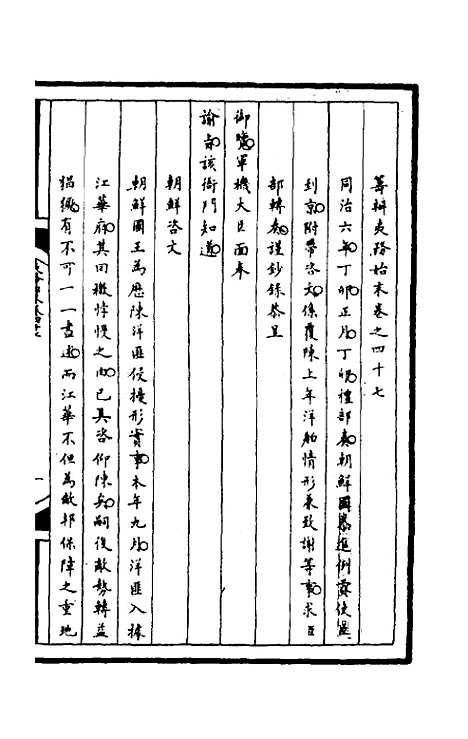 籌辦夷務始末卷之四十七
同治六年丁卯正月丁酉禮部奏朝鮮國恭進例貢使臣
到京附帶咨文係覆陳上年洋舶情形兼致謝等事求臣
部轉奏謹鈔錄恭呈
御覽軍機大臣面奉
諭旨該衙門知道
朝鮮咨文
朝鮮國王為歷陳洋匪侵擾形實事本年九月洋匪入據
江華府其回檄悖慢之由已具咨仰陳矣嗣後敵勢轉益
猖獗有不可一一盡述而江華不但為敝邦保障之重地